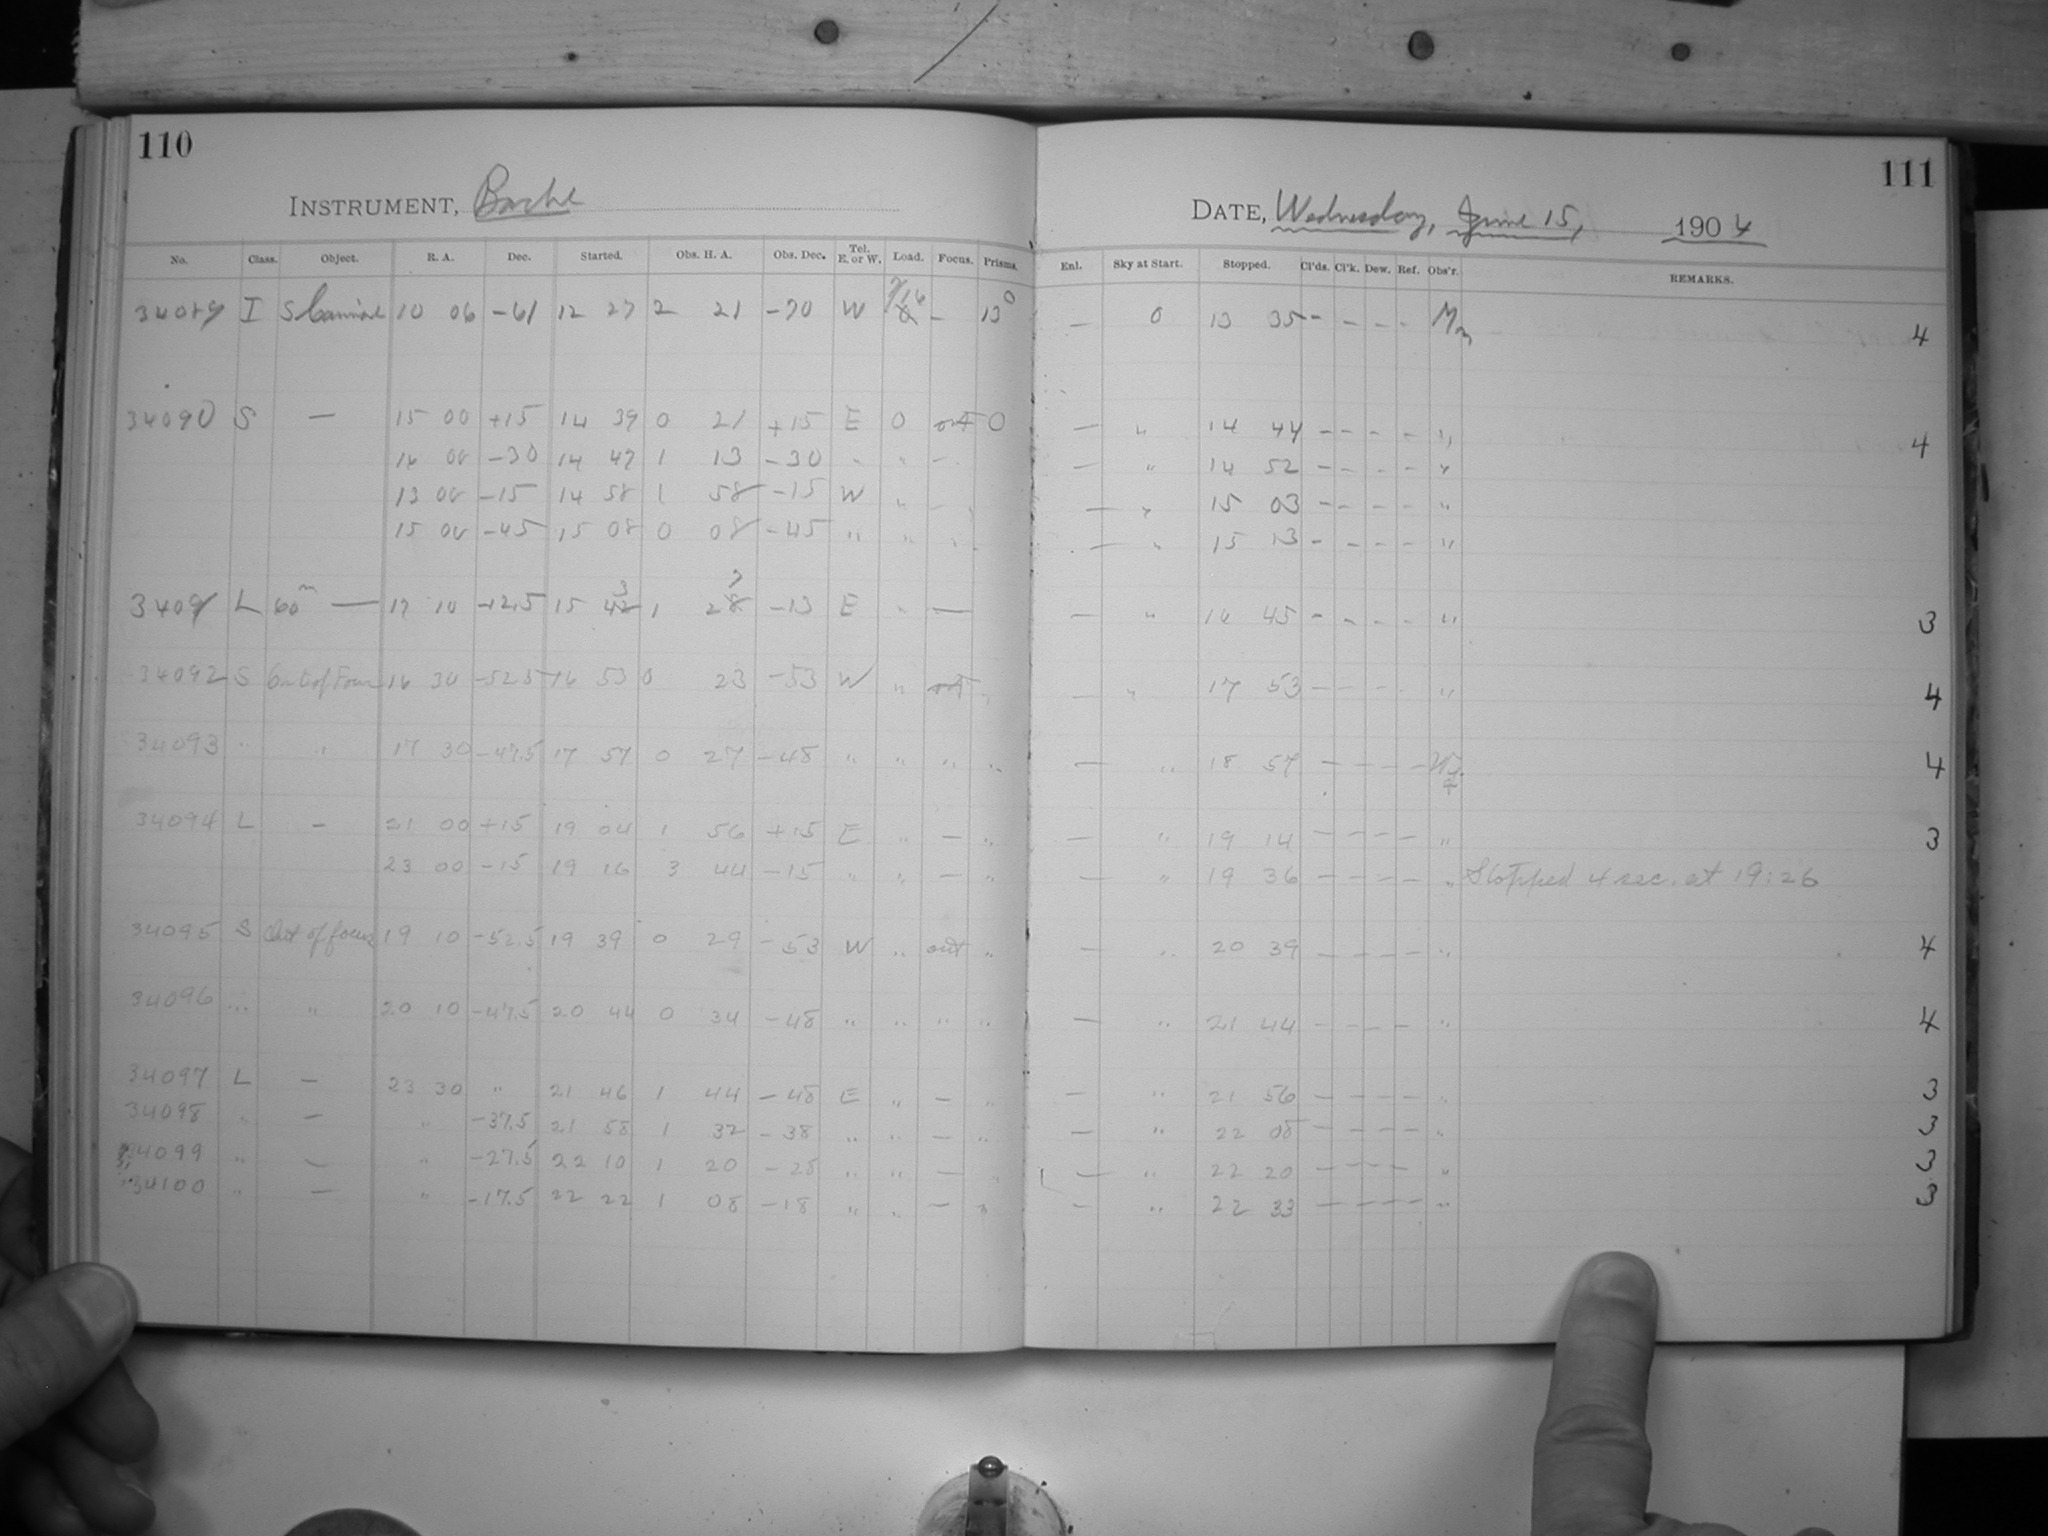 110
INSTRUMENT, Bache
No. Class. Object. R. A. Dec. Started. Obs. H. A. Obs. Dec. Tel. E. or W. Load. Focus. Prisms.
34089 I S Carinae 10 06 -61 12 27 2 21 -70 W — 13 0
34090 S — 15 00 +15 14 39 0 21 +15 E 0 out 0
16 00 -30 14 47 1 13 -30 " " —
13 00 -15 14 58 1 58 -15 W "
15 00 -45 15 08 0 08 -45 " "
34091 L 60m — 17 10 -12.5 15 43 1 27 -13 E " —
34092 S Out of Focus 16 30 -52.5 16 53 0 23 -53 W " out "
34093 " " 17 30 -47.5 17 57 0 27 -48 " " " "
34094 L — 21 00 +15 19 04 1 56 +15 E " — "
23 00 -15 19 16 3 44 -15 " " — "
34095 S Out of focus 19 10 -52.5 19 39 0 29 -53 W " out "
34096 " " 20 10 -47.5 20 44 0 34 -48 " " " "
34097 L — 23 30 " 21 46 1 44 -48 E " — "
34098 " — " -37.5 21 58 1 32 -38 " " — "
34099 " — " -27.5 22 10 1 20 -28 " " — "
34100 " — " -17.5 22 22 1 08 -18 " " — "
111
DATE, Wednesday, June 15, 1904
Enl. Sky at Start. Stopped. Cl'ds. Cl'k. Dew. Ref. Obs'r. REMARKS.
— 0 13 35 — — — — 4
— " 14 44 — — — — " 4
— " 14 52 — — — — "
— " 15 03 — — — — "
— " 15 13 — — — — "
— " 16 45 — — — — " 3
— " 17 53 — — — — " 4
— " 18 57 — — — — 4
— " 19 14 — — — — " 3
— " 19 36 — — — — " Stopped 4 sec. at 19:26
— " 20 39 — — — — " 4
— " 21 44 — — — — " 4
— " 21 56 — — — — " 3
— " 22 08 — — — — " 3
— " 22 20 — — — — " 3
— " 22 33 — — — — " 3